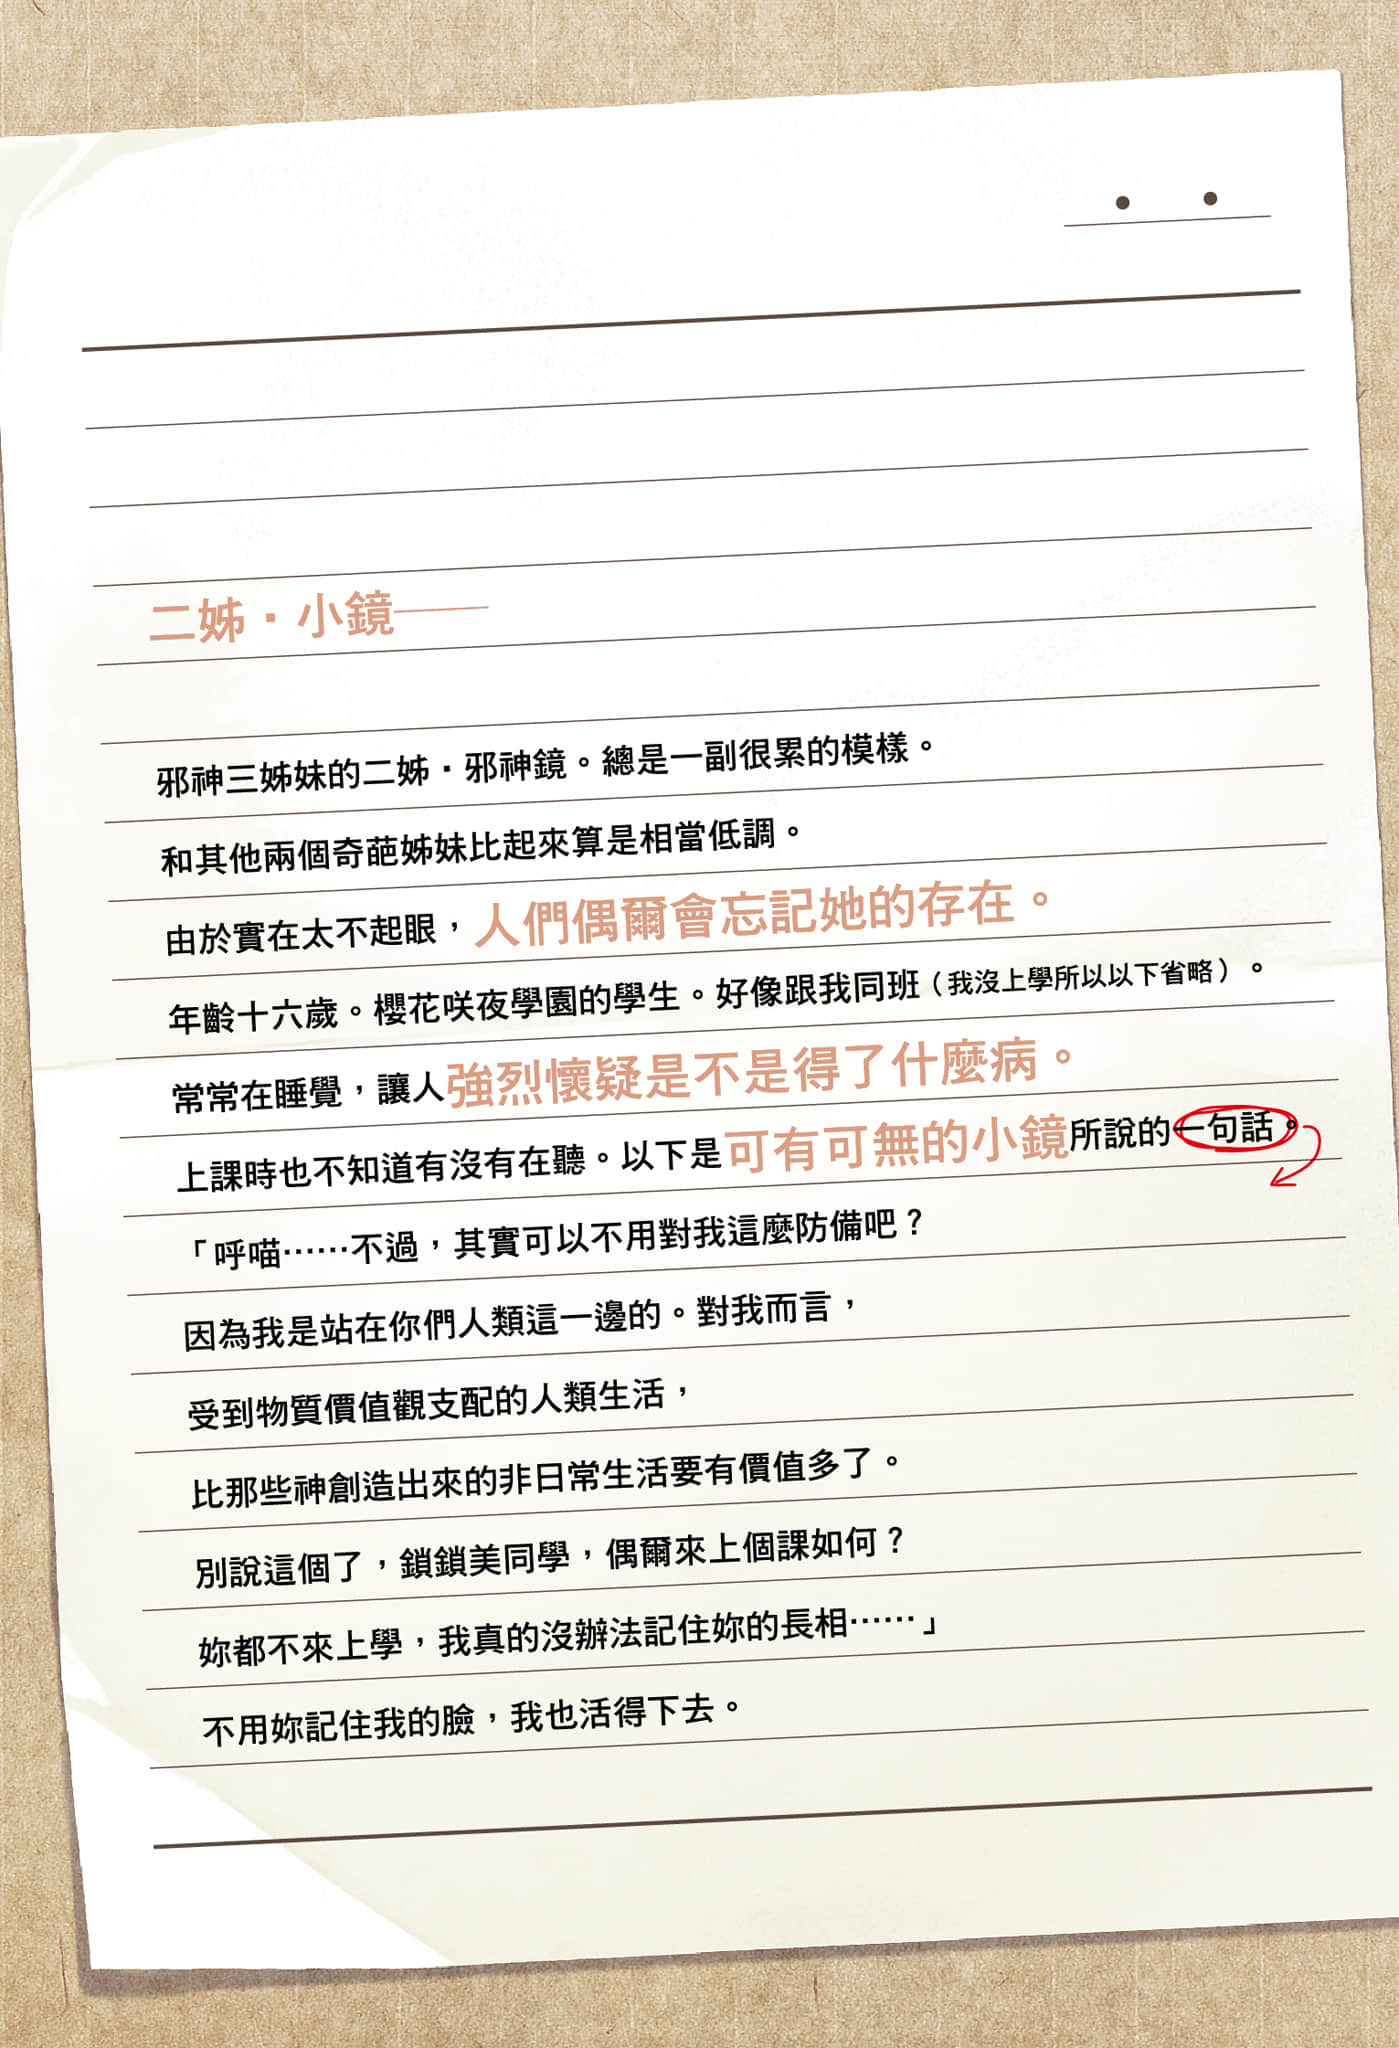 二姊・小鏡──
邪神三姊妹的二姊・邪神鏡。總是一副很累的模樣。
和其他兩個奇葩姊妹比起來算是相當低調。
由於實在太不起眼，人們偶爾會忘記她的存在。
年齡十六歲。櫻花咲夜學園的學生。好像跟我同班（我沒上學所以以下省略）。
常常在睡覺，讓人強烈懷疑是不是得了什麼病。
上課時也不知道有沒有在聽。以下是可有可無的小鏡所說的一句話。
「呼喵……不過，其實可以不用對我這麼防備吧？
因為我是站在你們人類這一邊的。對我而言，
受到物質價值觀支配的人類生活，
比那些神創造出來的非日常生活要有價值多了。
別說這個了，鎖鎖美同學，偶爾來上個課如何？
妳都不來上學，我真的沒辦法記住妳的長相……」
不用妳記住我的臉，我也活得下去。